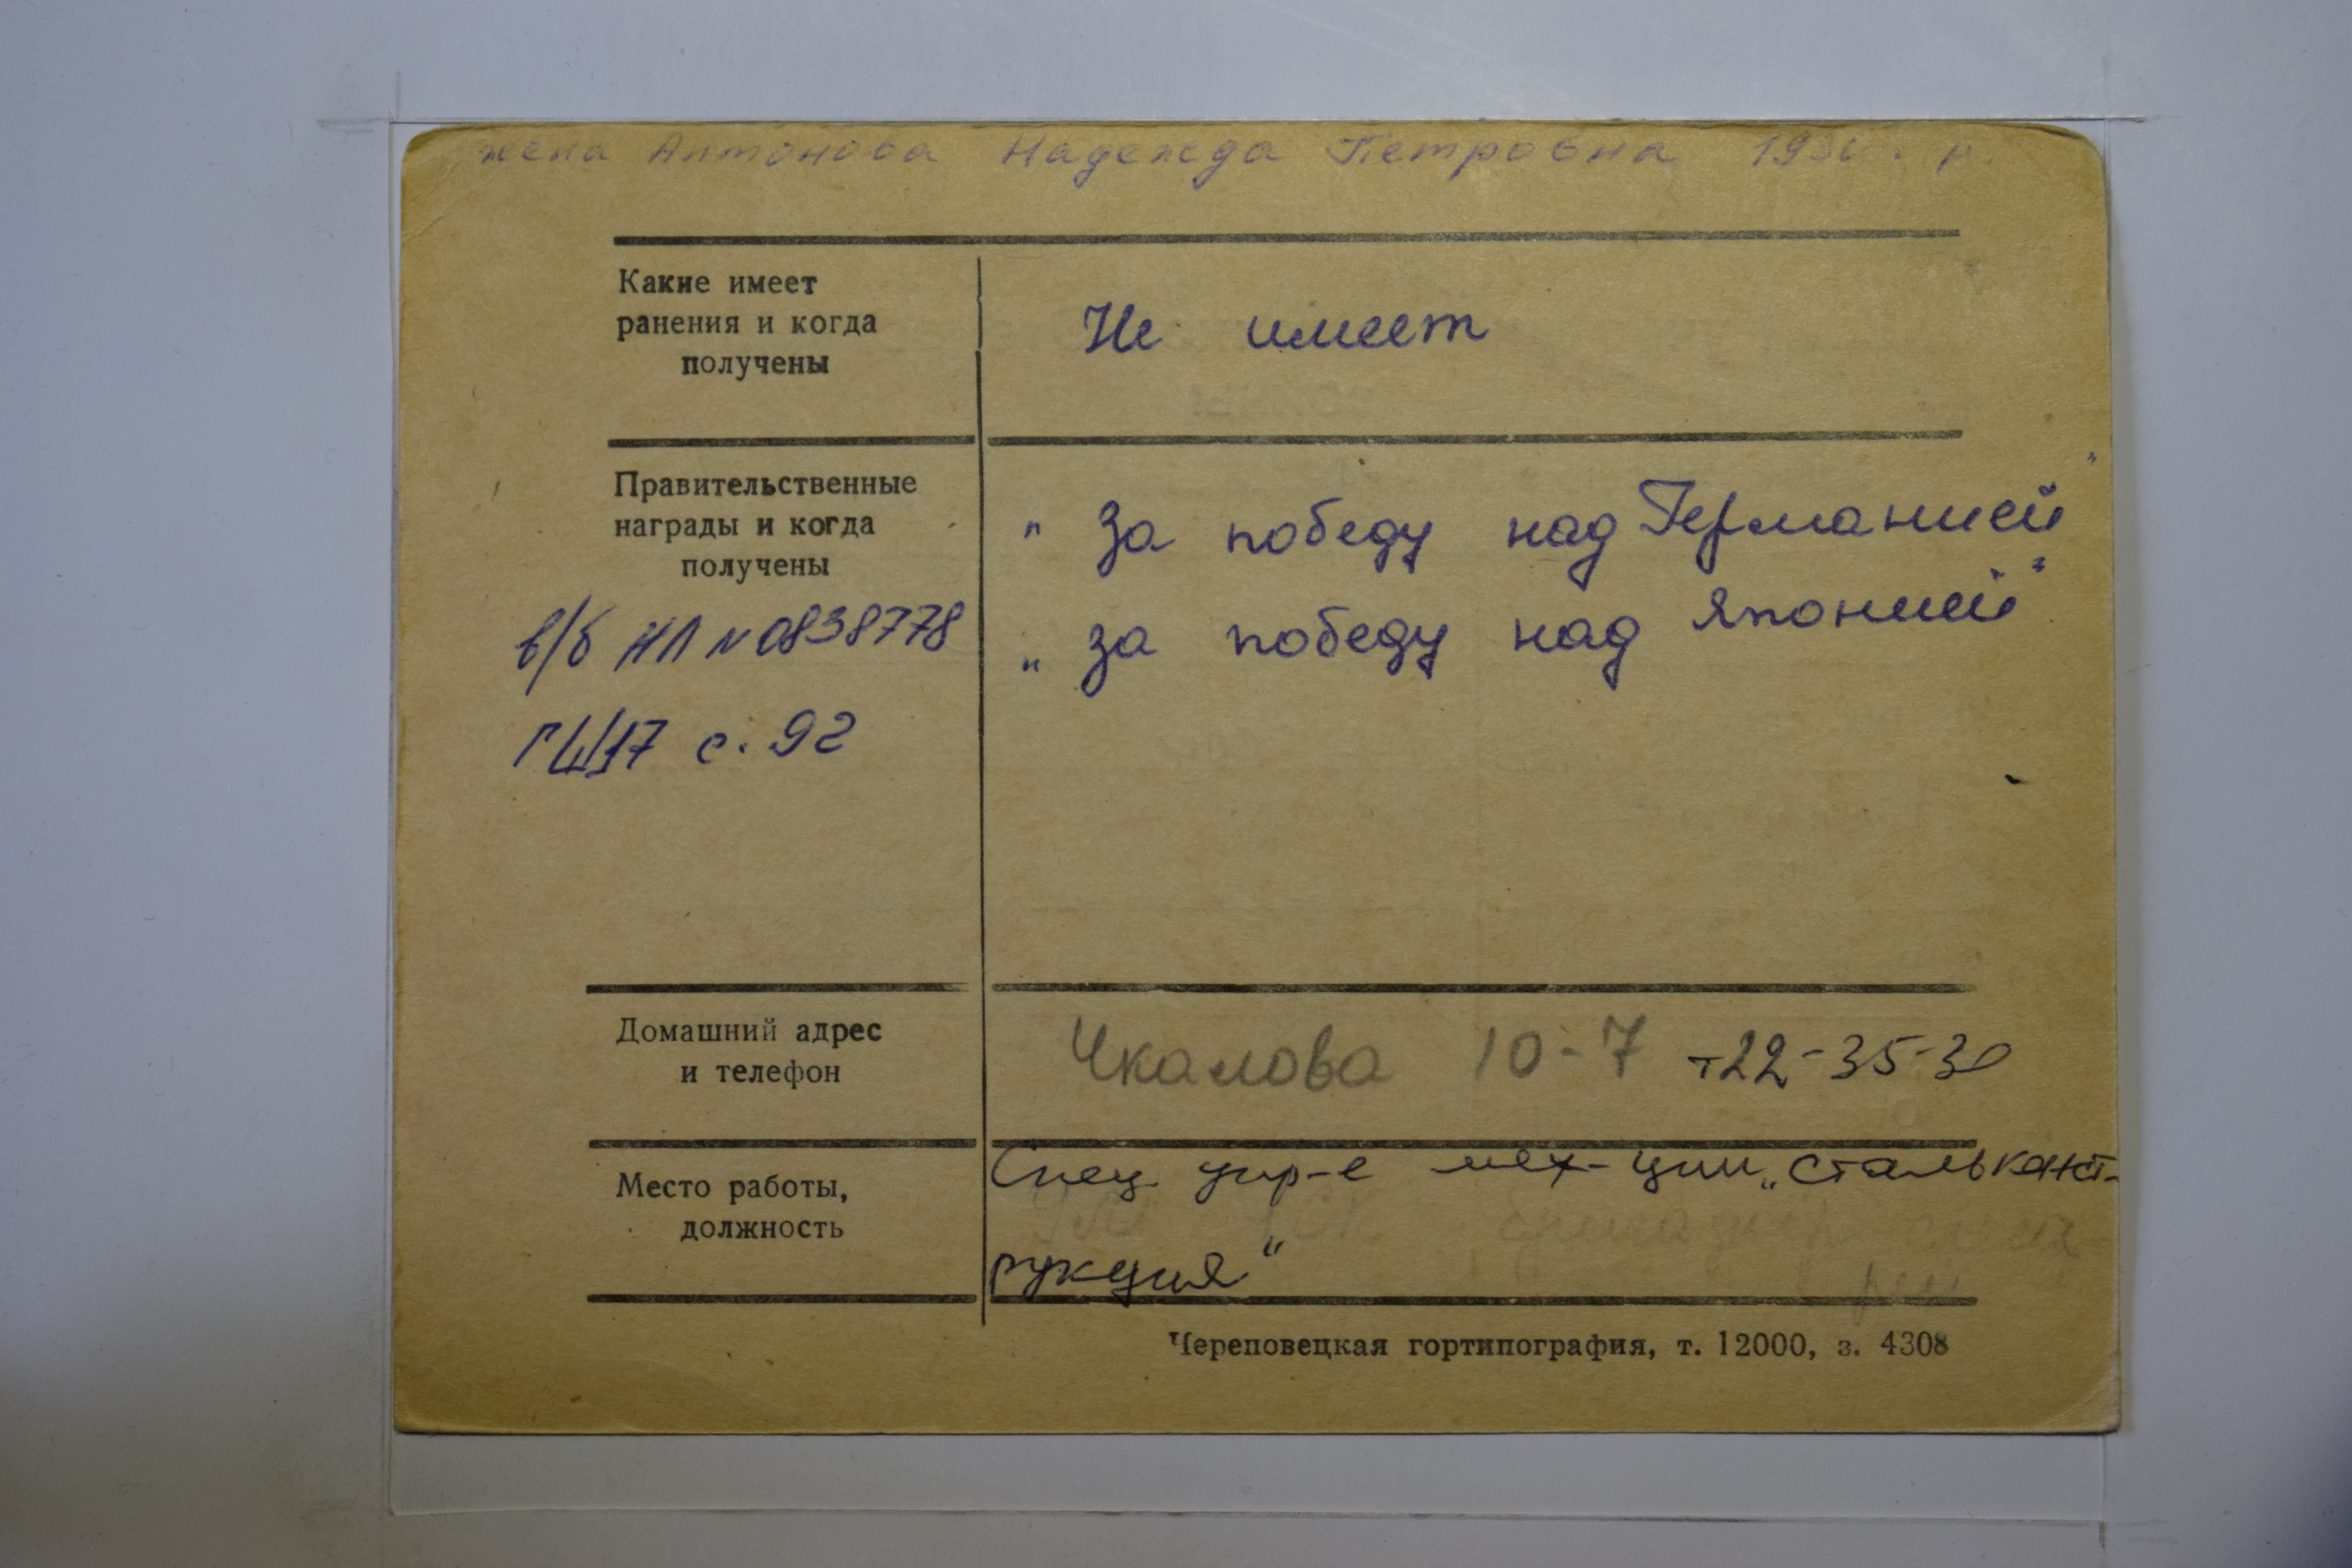 жена Антонова Надежда Петровна
Какие имеет
ранения и когда
получены
Не имеет
Правительственные
награды и когда
получены
в/б НЛ N 0838778
ГШ17 с. 92
" За победу над Германией"
" за победу над Японией"
Домашний адрес
и телефон
Чкалова 10-7 т 22-35-30
Место работы,
должность
Спец. упр-е мех-ции „Стальконст-
рукция“
Череповецкая гортипография, т. 12000, з. 4308